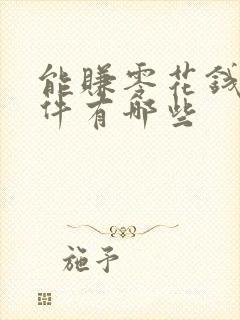 能賺零花錢
件有哪些
施予